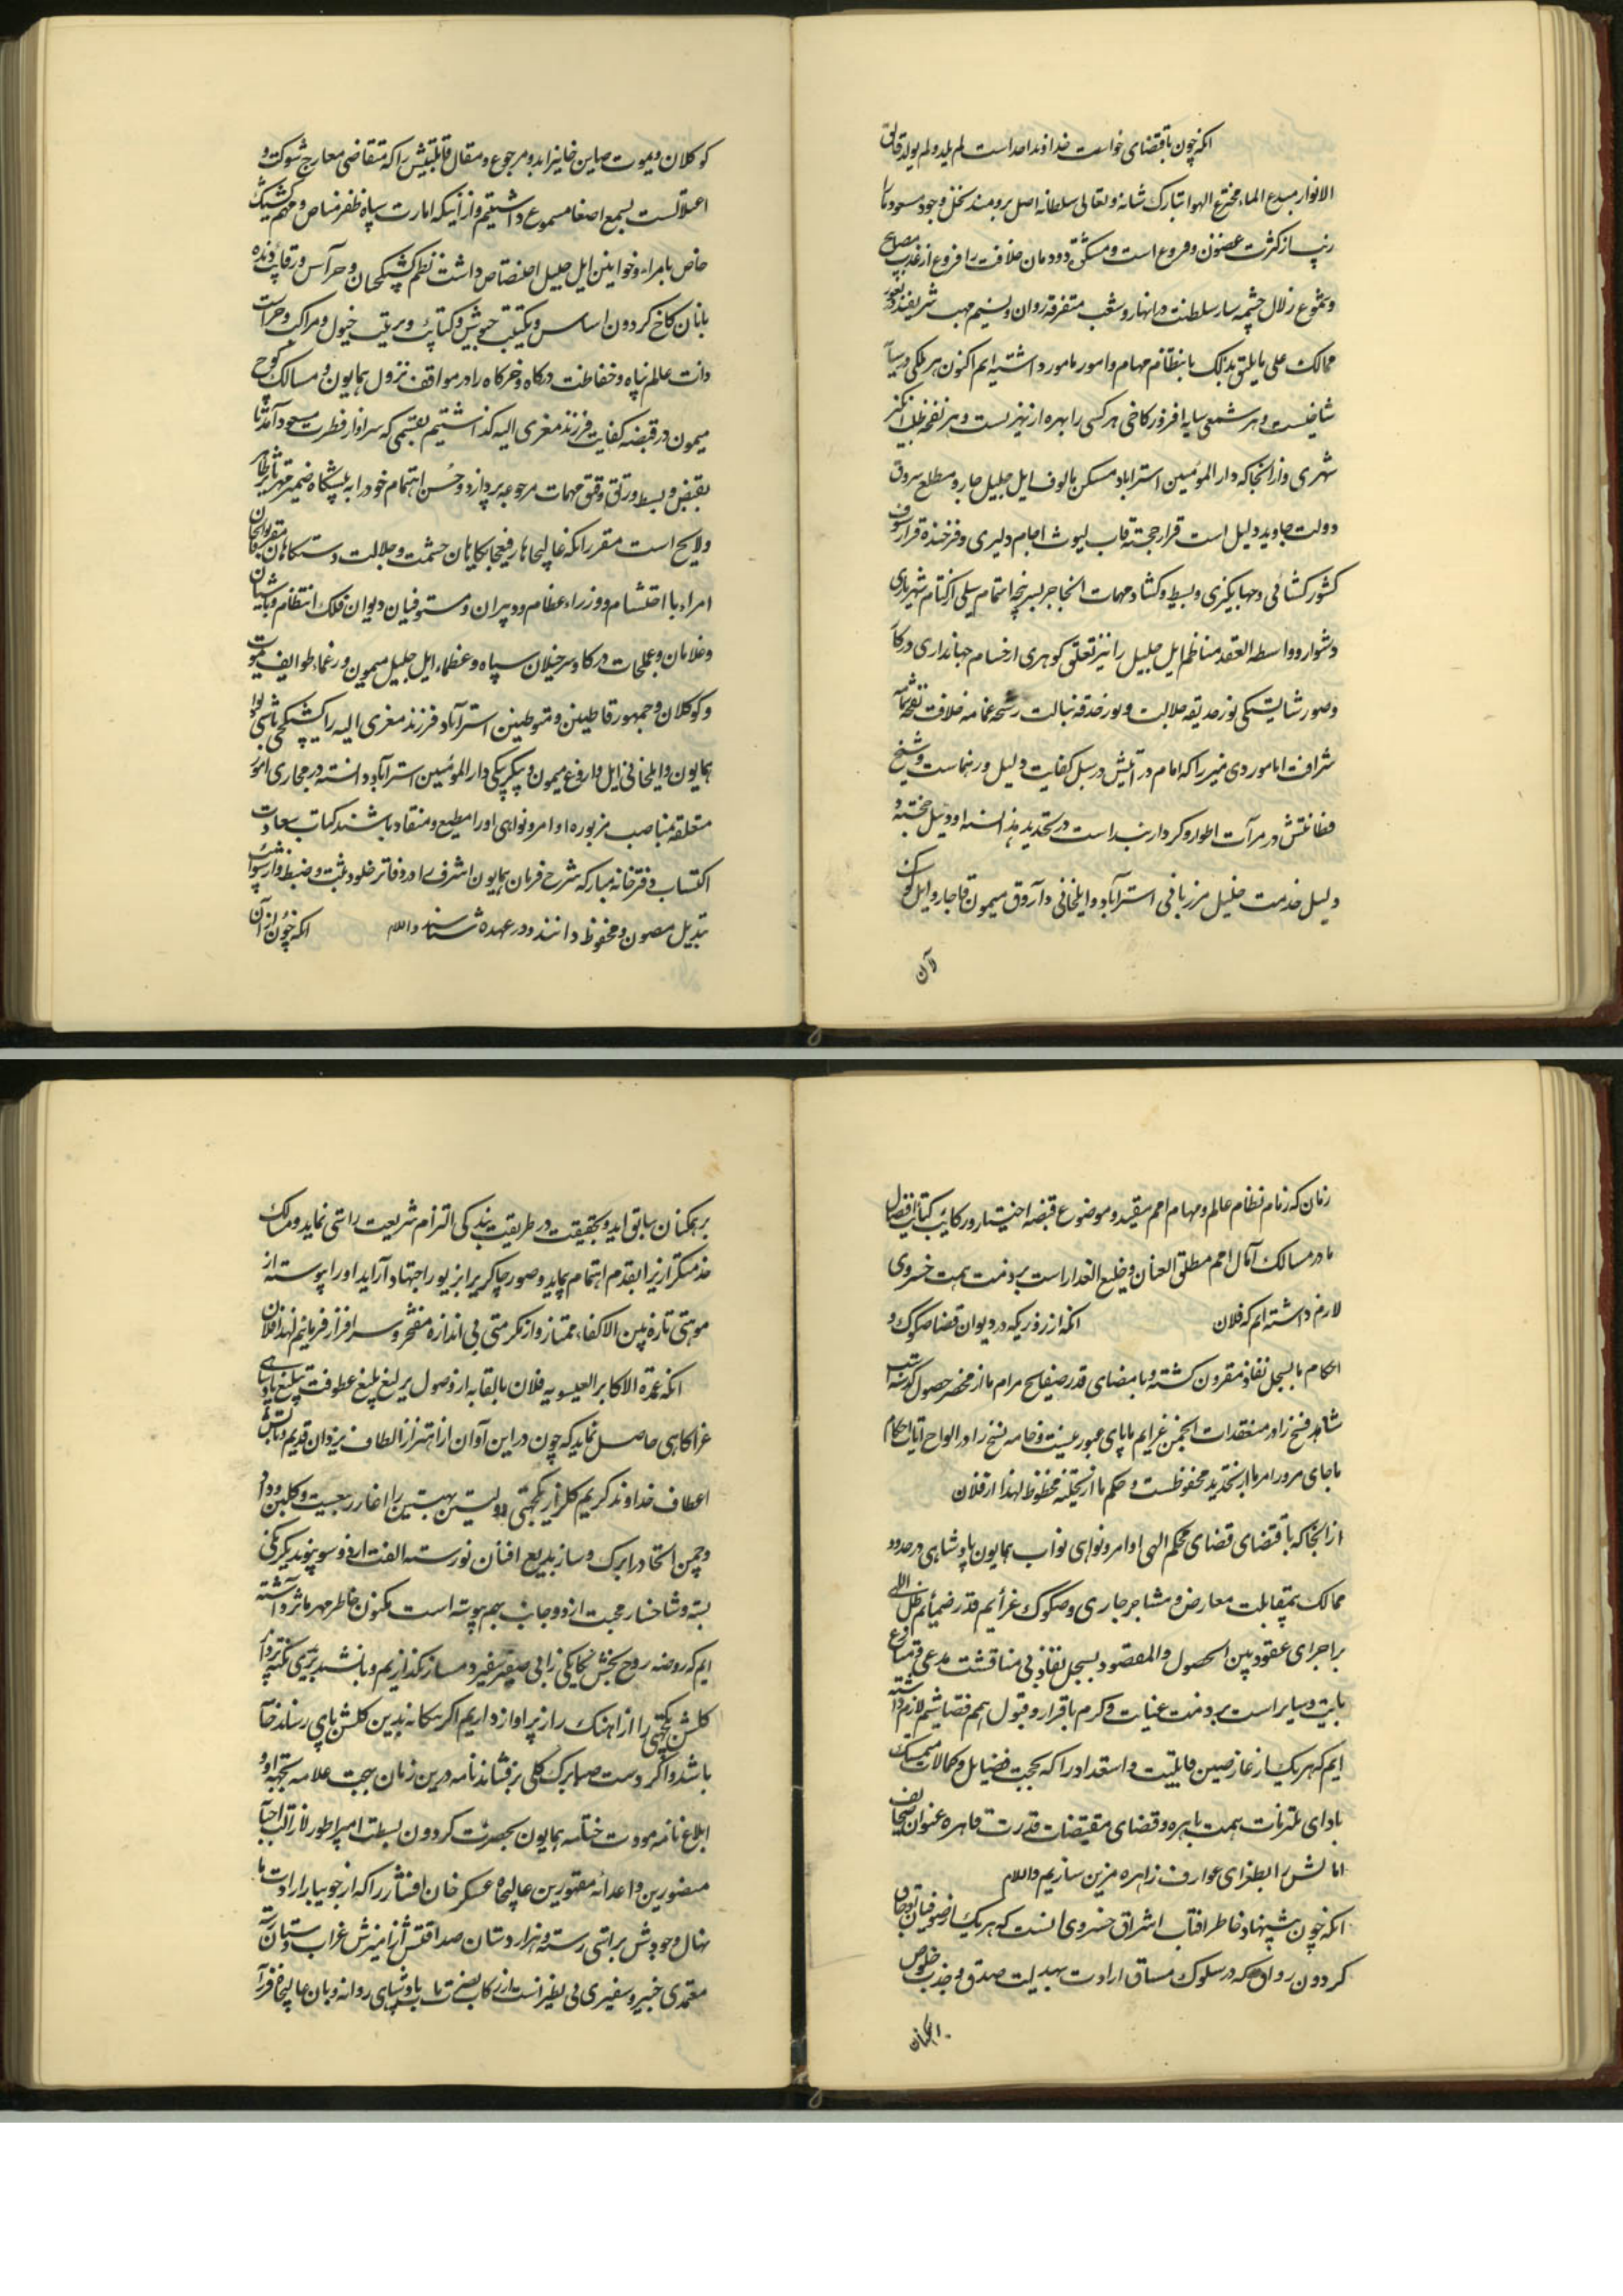 آنکه چون باقتضای خواست خداوند احد است لم یلد و لم یولد فالق
الانوار مبدع الماء مخترع الهوا تبارک شانه و تعالی سلطانه اصل برومند نخل وجود مسعود ما
از کثرت غصون و فروع است و مشکوة دودمان خلافت را فروغ از مصابیح
و نبوع زلال چشمه سار سلطنت در انهار و شعب متفرقه روان و نسیم مهب شریفه
ممالک علی ما یلیق بذلک بانتظام مهام و امور مامور داشته ایم اکنون هر ملکی در سایه
شاخیست و هر شمعی سایه افروز کاخی هر کسی را بهره از نهریست و هر نفحه
شهری و از انجا که دار المومنین استراباد مسکن مالوف ایل جلیل قاجار و مطلع بروق
دولت جاوید دلیل است قرار لیوث آجام دلیری و فرخنده قرار
کشور کشائی و جهانگیری و بسط و کشاد مهمات انجا جز بسر پنجه اهتمام شهریاری
دشوار و واسطه العقد مناظم ایل جلیل را نیز تعلق گوهری از اقسام جهانداری درکار
و صور شایستگی نور حدیقه جلالت و نور حدقه نبالت رشحه غمامه خلافت نفحه شمامه
شرافت اما موردی میرزا که امام درایتش در سبل کفایت دلیل و رهنماست و شیخ
فطانتش در مرآت اطوار و کردار پیداست در تحدید هذه السنه اودئیل خجسته
دلیل خدمت جلیل مرزبانی استرآباد و ایلخانی و آروق میمون قاجار و ایل کوک
لان
کوکلان و یموت صاین خانیرا بدو مرجوع و مقال قابلیتش را که متقاضی معارج شوکت و
اعتلاست بسمع اصغا مسموع داشتیم و از آنکه امارت سپاه ظفر مناص و مهم کشیک
خاص بامراء و خوانین ایل جلیل اختصاص داشت نظم کشیکچیان و حراس و
بانان کاخ گردون اساس و تکتیب جیوش و کتائب و ترتیب خیول و مراکب و حراست
ذات عالم پناه و حفاظت درگاه و خرگاه را در مواقف نزول همایون و مسالک کوچ
میمون در قبضه کفایت فرزند معزی الیه گذاشتیم بقسمی که سزاوار فطرت مسعود آمد تا
بقبض و بسط و رتق و فتق مهمات مرجوعه پردازد و حسن اهتمام خود را به پیشگاه ضمیر
و لایح است مقرر آنکه عالیجاهان رفیعجایگاهان حشمت و جلالت دستگاهان مقربوالخاقان
امراء با احتشام و وزراء عظام و دبیران و مستوفیان دیوان فلک انتظام و
و غلامان و عملجات درگاه و سرخیلان سپاه و عظماء ایل جلیل میمون و زعماء طوایف یموت
و کوکلان و جمهور قاطنین و متوطنین استرآباد فرزند معزی الیه را کشیکچی باشی
همایون و ایلخانی ایل و آروغ میمون و بیگلربیگی دار المومنین استرآباد دانسته در مجاری امور
متعلقه بمناصب مزبوره اوامر و نواهی او را مطیع و منقاد باشند کتاب سعادت
اکتساب دفترخانه مبارکه شرح فرمان همایون اشرف را در دفاتر خلود ثبت و ضبط و از
تبدیل مصون و محفوظ دانند و در عهده شناسند والسلام آنکه چون از آن
زمان که زمام نظام عالم و مهام امم مقید و موضوع قبضه اختیار و رکایب
ما در مسالک آمال امم مطلق العنان و خلیع العذار است بر ذمت همت خسروی
لازم داشته ایم که فلان آنکه از روزیکه در دیوان قضا صکوک و
احکام ما بسجل نفاذ مقرون گشته و بامضای قدر صفایح مرام ما از محضر حصول
شاهد فسخ را در منعقدات انجمن عزایم ما پای عبور نیست و خامه نسخ را در الواح آیات احکام
ما جای مرور امر ما از تحدید محفوظست و حکم ما از تخلف محظوظ لهذا از فلان
از انجا که باقتضای قضای محکم الهی اوامر و نواهی نواب همایون پادشاهی در حدود
ممالک بمقابلت معارض و مشاجر جاری و صکوک عزائم قدر ضمایم ظل اللهی
بر اجرای عقود بین الحصول و المقصود بسجل نفاذ بی مناقشت مدعی و
ثابت و سایر است بر ذمت عنایت و کرم باقرار و قبول امم قضا شیم لازم داشته
ایم که هر یک از عارضین قابلیت و استعداد را که بحجت فضایل و کمالات متمسک
بادای ملتزمات همت باهره و قضای مقتضات قدرت قاهره عنوان صحایف
امالش را بطغرای عوارف زاهره مزین سازیم والسلام
آنکه چون پیشنهاد خاطر افتاب اشراق خسروی انست که هر یک از صوفیان
گردون رواق که در سلوک مساق ارادت بهدایت صدق و جذب خلوص
بر همکنان سابق آید و بحقیقت در طریقت بندگی التزام شریعت راستی نماید و مسالک
خدمتگزاریرا بقدم اهتمام پیماید و صور چاکریرا بزیور اجتهاد آراید او را پیوسته از
موهبتی تازه بین الاکفاء ممتاز و از مکرمتی بی اندازه مفتخر و سرافراز فرمائیم لهذا فلان
آنکه عمدة الاکابر العیسویه فلان بالقابه از وصول یرلیغ بلیغ عطوفت تبلیغ پادشاهی
عز آگاهی حاصل نماید که چون در این آوان از اهتزاز الطاف یزدان قدیم و
اعطاف خداوند کریم گلزار یکجهتی دولتین بهیتین را و گلبن وداد
و چمن اتحاد را برگ و ساز بدیع افنان نورسته الفت از دو سو پیوند یکرنگی
بسته و شاخسار محبت از دو جانب بهم پیوسته است مکنون خاطر مهر مآثر داشته
ایم که روضه روح بخش یگانگی را بی صفیر سفیر دمساز نگذاریم و
گلشن یکجهتی را از آهنگ راز پر اواز داریم اگر بیگانه بدین گلشن پای رساند خار
باشد و اگر دست صبا برگ گلی برفشاند نامه درین زمان بهجت علامه بجهة
ابلاغ نامه مودت ختامه همایون بحضرت گردون بسطت امپراطور لازالت احباؤه
منصورین و اعدائه مقهورین عالیجاه عسکر خان افشار را که از جویبار ارادت ما
نهال وجودش براستی رسته و هزار دستان صداقتش از آمیزش
معتمدی خبیر و سفیری بی نظیر است از رکاب نصرت مآب پادشاهی روانه و بان عالیجاه